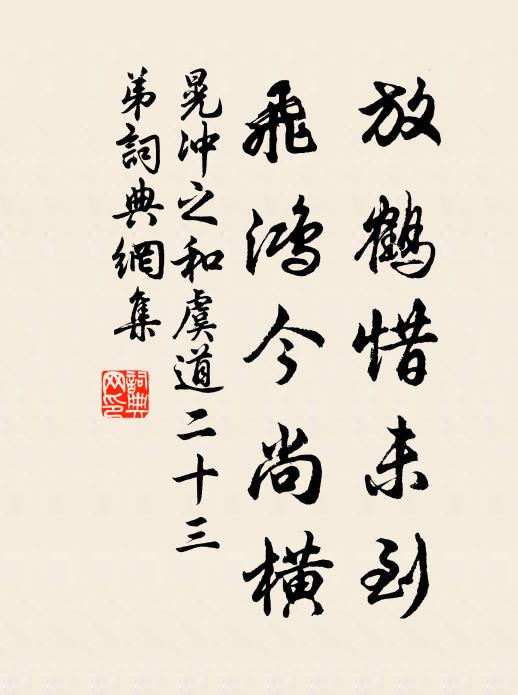 放鶴惜未到
飛鴻今尚橫
晁沖之和虞道二十三
弟詞典網集
詞典
网印